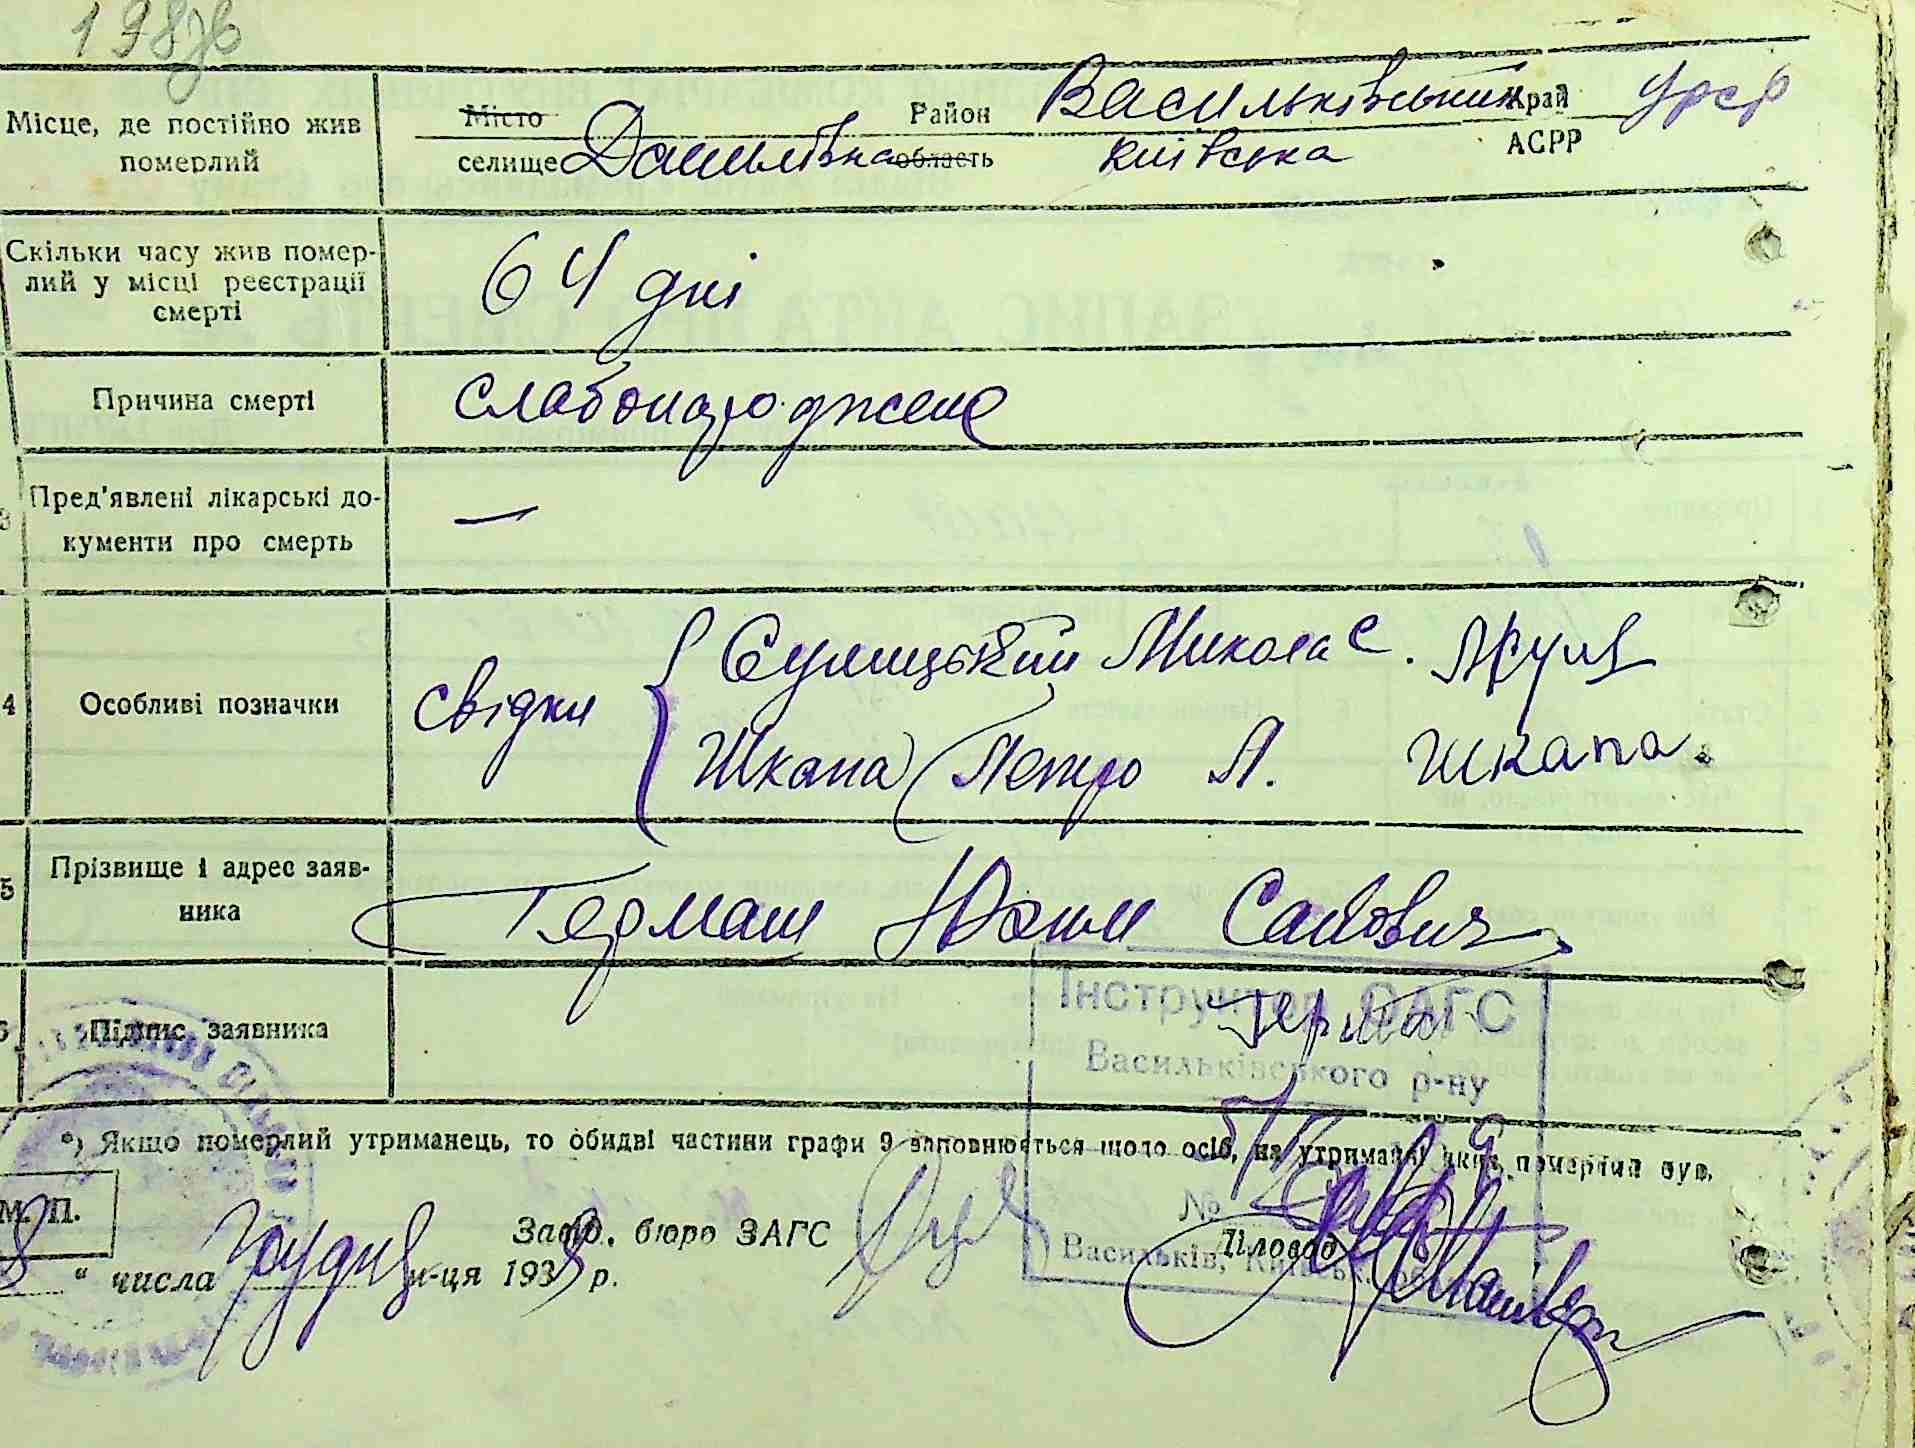 198зв
Місце, де постійно жив померлий
Місто Район Васильківський Край УРСР
селище Данилівка область київська АСРР
Скільки часу жив помер-
лий у місці реєстрації
смерті
64 дні
Причина смерті
слабонароджене
Пред'явлені лікарські до-
кументи про смерть
—
4 Особливі позначки
свідки
Микола С.
Шкапа Петро Л. Шкапа
5 Прізвище і адрес заяв-
ника
Гермаш Юхим Савович
Підпис заявника
Інструктор ОАГС
Васильківського р-ну
*) Якщо померлий утриманець, то обидві частини графи 9 заповнюється щодо осіб, на утриманні яких померлий був.
М. П.
№
Завід. бюро ЗАГС
Діловод
Васильків, Київськ.
8 " числа Грудня м-ця 193 р.